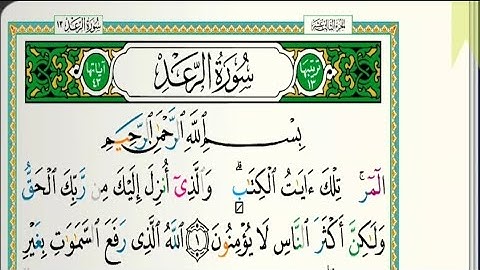 سُورَةُ الرَّعْدِ ١٣ الجزء الثالث عشر
ترتيبها ١٣ سُورَةُ الرَّعْدِ آياتها ٤٣
بِسْمِ ٱللَّهِ ٱلرَّحْمَٰنِ ٱلرَّحِيمِ
الٓمٓر ۚ تِلْكَ ءَايَٰتُ ٱلْكِتَٰبِ ۗ وَٱلَّذِىٓ أُنزِلَ إِلَيْكَ مِن رَّبِّكَ ٱلْحَقُّ
وَلَٰكِنَّ أَكْثَرَ ٱلنَّاسِ لَا يُؤْمِنُونَ ١ ٱللَّهُ ٱلَّذِى رَفَعَ ٱلسَّمَٰوَٰتِ بِغَيْرِ